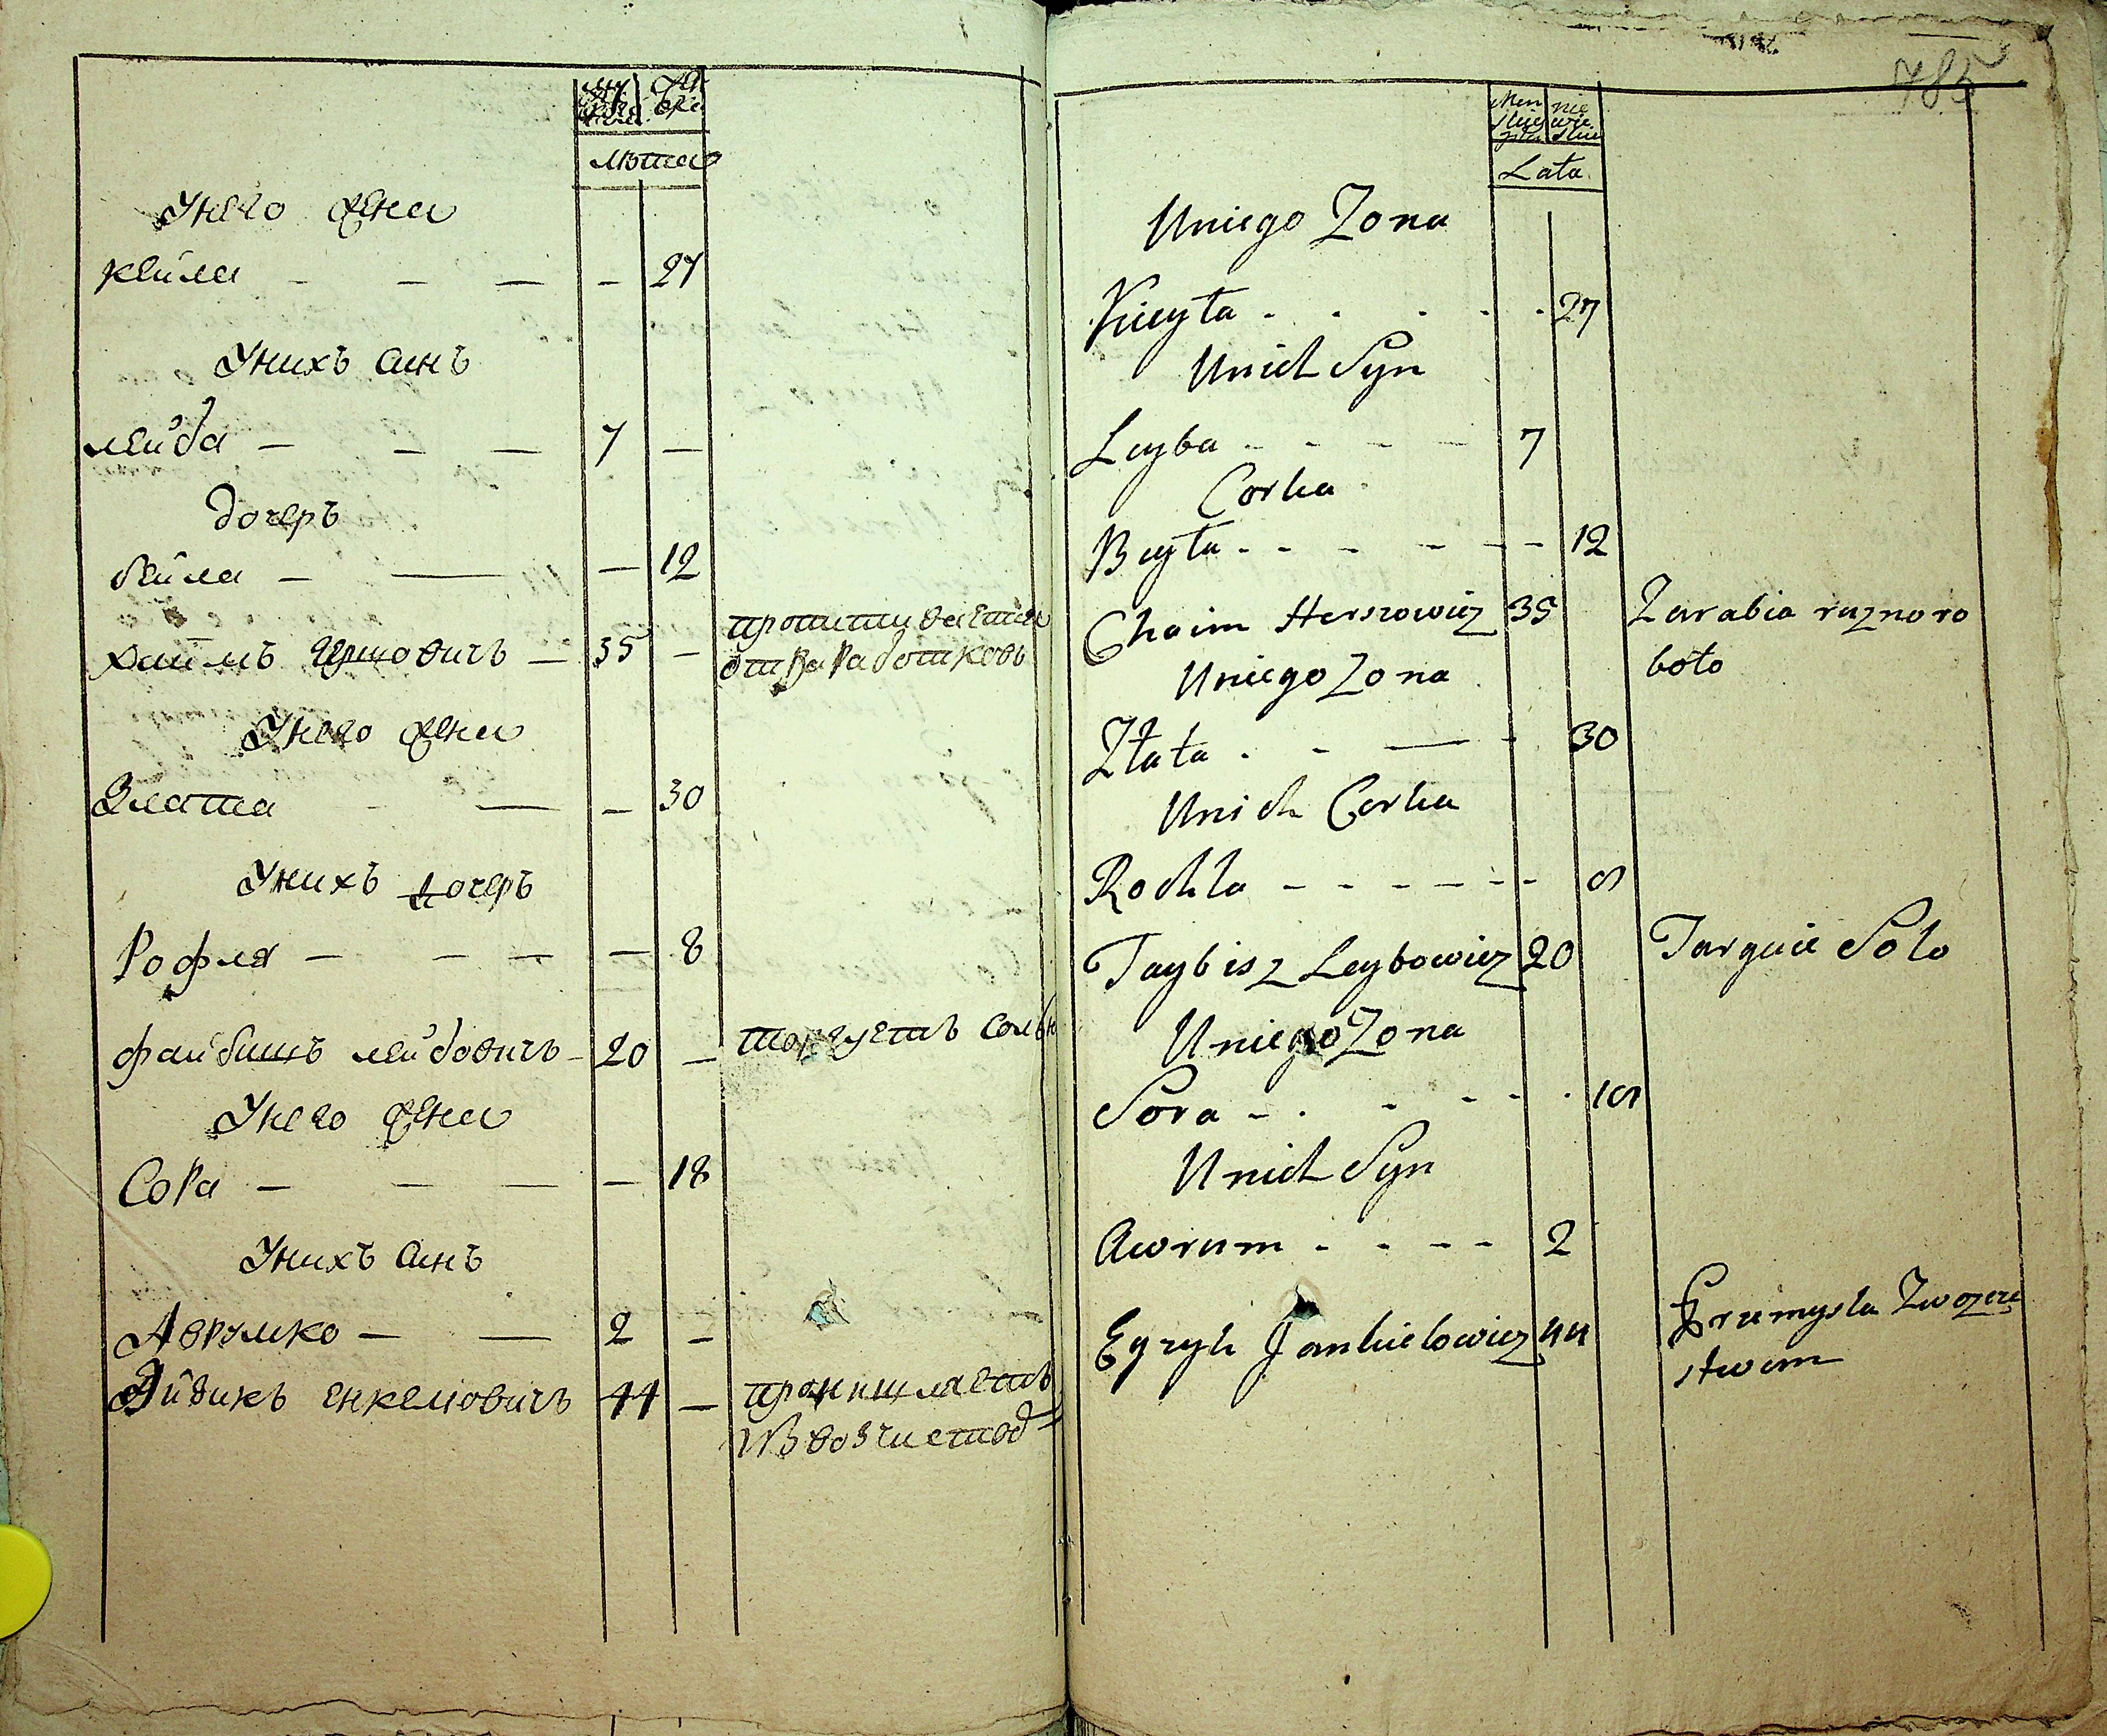 Унего жена
кейла — — — — 27
Унихъ синъ
лейба — — — 7 —
дочеръ
бейла — — — 12
хаимъ Гершовичъ — 35 —
отзаработковъ
Унего жена
Злата — — 30
Унихъ дочеръ
Рофля — — — — 8
файбишъ лейбовичъ — 20 — торгуетъ солью
Унего жена
Сора — — — — 18
Унихъ синъ
Аврумко — — 2 —
Айзикъ енкелювичъ 44 — промишляетъ
Извозничествод=
785
Men nie
skie wie
płci skie
Lata
Uniego Zona
Kieyła - - - - - 27
Unich Syn
Leyba - - - - 7
Corka
Beyła - - - - - - 12
Chaim Herszowicz 35 Zarabia raznoro
boto
Uniego Zona
Złata - - — - 30
Unich Corka
Rochla - - - - - - 8
Faybisz Leybowicz 20 Targuie Solo
Uniego Zona
Sora - - - - - - 18
Unich Syn
Awrum - - - - 2
Eyzyk Jankielowicz 44
stwem